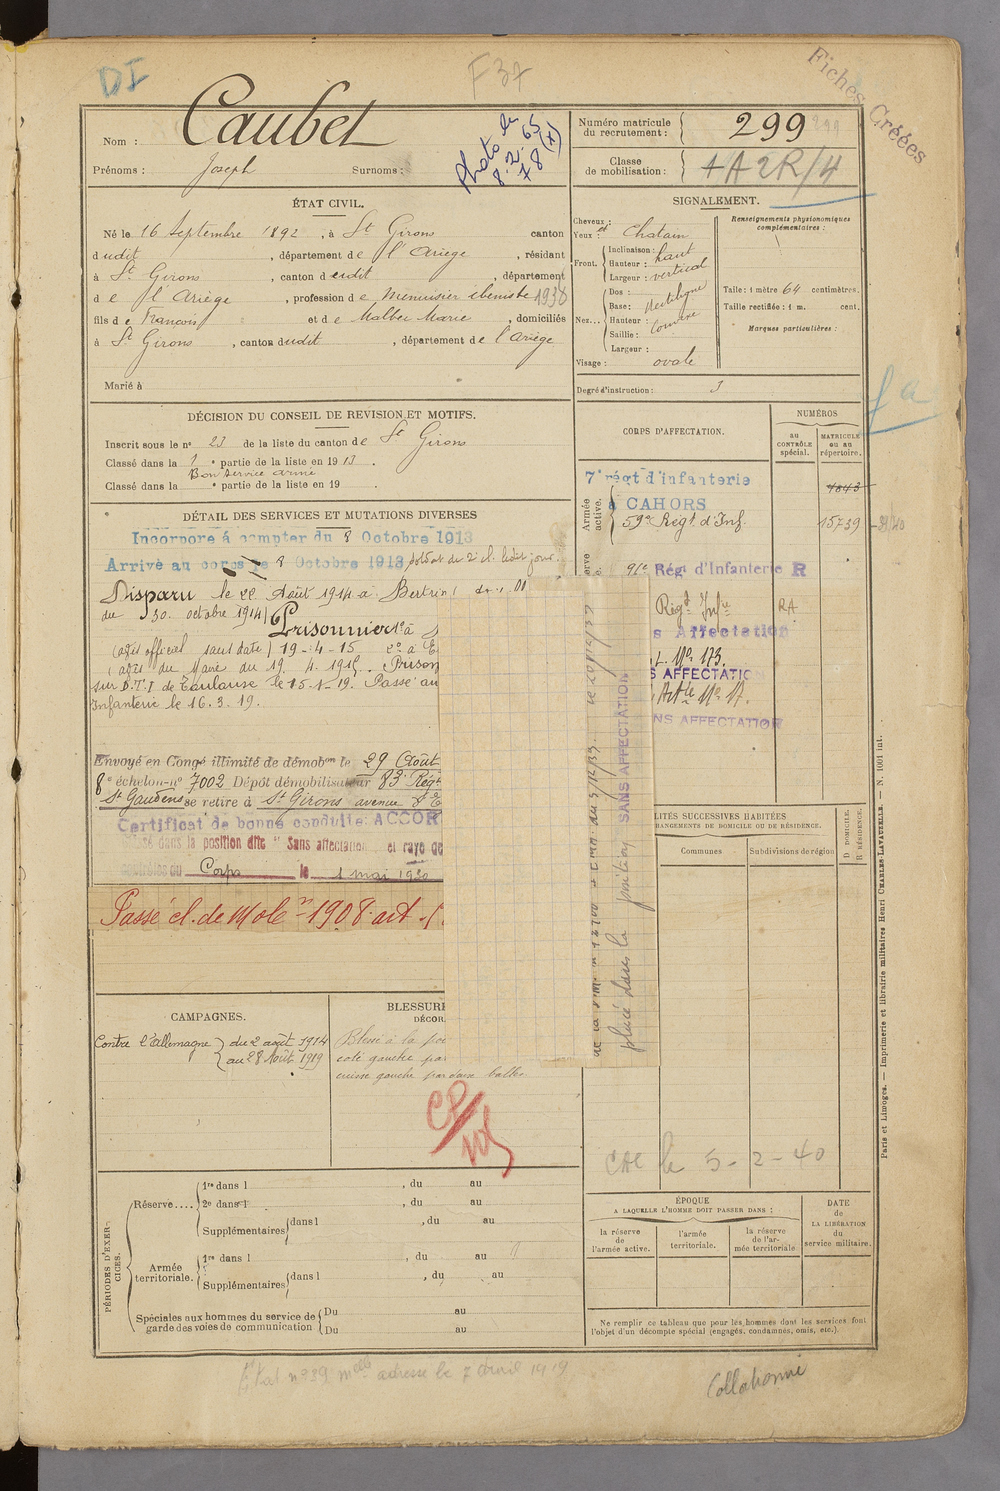 DI
F 37
Fiches Créées
Nom : Caubet
Prénoms : Joseph Surnoms :
Photo le
8.2.65
78 (x)
Numéro matricule
du recrutement : 299
Classe
de mobilisation : 1A2R/4
ÉTAT CIVIL.
Né le 16 Septembre 1892, à St Girons canton
dudit, département de l'Ariège, résidant
à St Girons, canton dudit, département
de l'Ariège, profession de Menuisier ébéniste 1938
fils de François et de Malbec Marie, domiciliés
à St Girons, canton dudit, département de l'Ariège
Marié à
SIGNALEMENT.
Cheveux : et
Yeux : Chatain
Front. Inclinaison : haut
Hauteur :
Largeur : vertical
Nez... Dos :
Base : Rectiligne
Hauteur :
Saillie :
Largeur :
Visage : ovale
Renseignements physionomiques
complémentaires :
Taille : 1 mètre 64 centimètres.
Taille rectifiée : 1 m. cent.
Marques particulières :
Degré d'instruction : 3
DÉCISION DU CONSEIL DE REVISION ET MOTIFS.
Inscrit sous le n° 23 de la liste du canton de St Girons
Classé dans la 1e partie de la liste en 1913.
Bon service armé
Classé dans la e partie de la liste en 19
CORPS D'AFFECTATION.
NUMÉROS
au
CONTRÔLE
spécial.
MATRICULE
ou au
répertoire.
Armée
active,
7e régt d'infanterie
à CAHORS
4843
59e Régt d'Inf. 15739
91e Régt d'Infanterie R
Régt Infie RA
s Affectation
L. No 173.
S AFFECTATION
Artie No 17.
NS AFFECTATION
DÉTAIL DES SERVICES ET MUTATIONS DIVERSES
Incorporé à compter du 8 Octobre 1913
Arrivé au corps le 8 Octobre 1913 soldat de 2e cl. ledit jour.
Disparu le 22 Août 1914 à Bertrix
du 30 octobre 1914) Prisonnier 1° à
(avis officiel sans date) 19-4-15 2° à
(avis du Maire du 19. 4. 1915. Prison
sur D.T.I de Toulouse le 15-1-19. Passé au
Infanterie le 16.3.19.
Envoyé en Congé illimité de démobon le 29 Août
8e échelon-no 7002 Dépôt démobilisateur 83e Régt
St Gaudens se retire à St Girons avenue
Certificat de bonne conduite: ACCOR
dans la position dite "Sans affectation et rayé
Corps le 1 mai 1930
Passé cl. de Mole 1908. art.
placé dans la position SANS AFFECTATION
LITÉS SUCCESSIVES HABITÉES
HANGEMENTS DE DOMICILE OU DE RÉSIDENCE.
Communes
Subdivisions de région
D DOMICILE.
R RÉSIDENCE.
CAMPAGNES.
Contre l'Allemagne du 2 août 1914
au 28 Août 1919
BLESSURE
DÉCOR
Blessé à la
coté gauche par
cuisse gauche par deux balles
CP/
CAL le 5-2-40
PÉRIODES D'EXERCICES.
Réserve.... 1re dans l , du au
2e dans l , du au
Supplémentaires dans l , du au
Armée
territoriale. 1re dans l , du au
Supplémentaires dans l , du au
Spéciales aux hommes du service de
garde des voies de communication Du au
Du au
ÉPOQUE
A LAQUELLE L'HOMME DOIT PASSER DANS :
la réserve
de
l'armée active.
l'armée
territoriale.
la réserve
de l'armée territoriale
DATE
de
LA LIBÉRATION
du
service militaire.
Ne remplir ce tableau que pour les hommes dont les services font
l'objet d'un décompte spécial (engagés, condamnés, omis, etc.).
Paris et Limoges. — Imprimerie et librairie militaires Henri CHARLES-LAVAUZELLE. — N. 1001 int.
adresse le 7 Avril 1919
Collationné